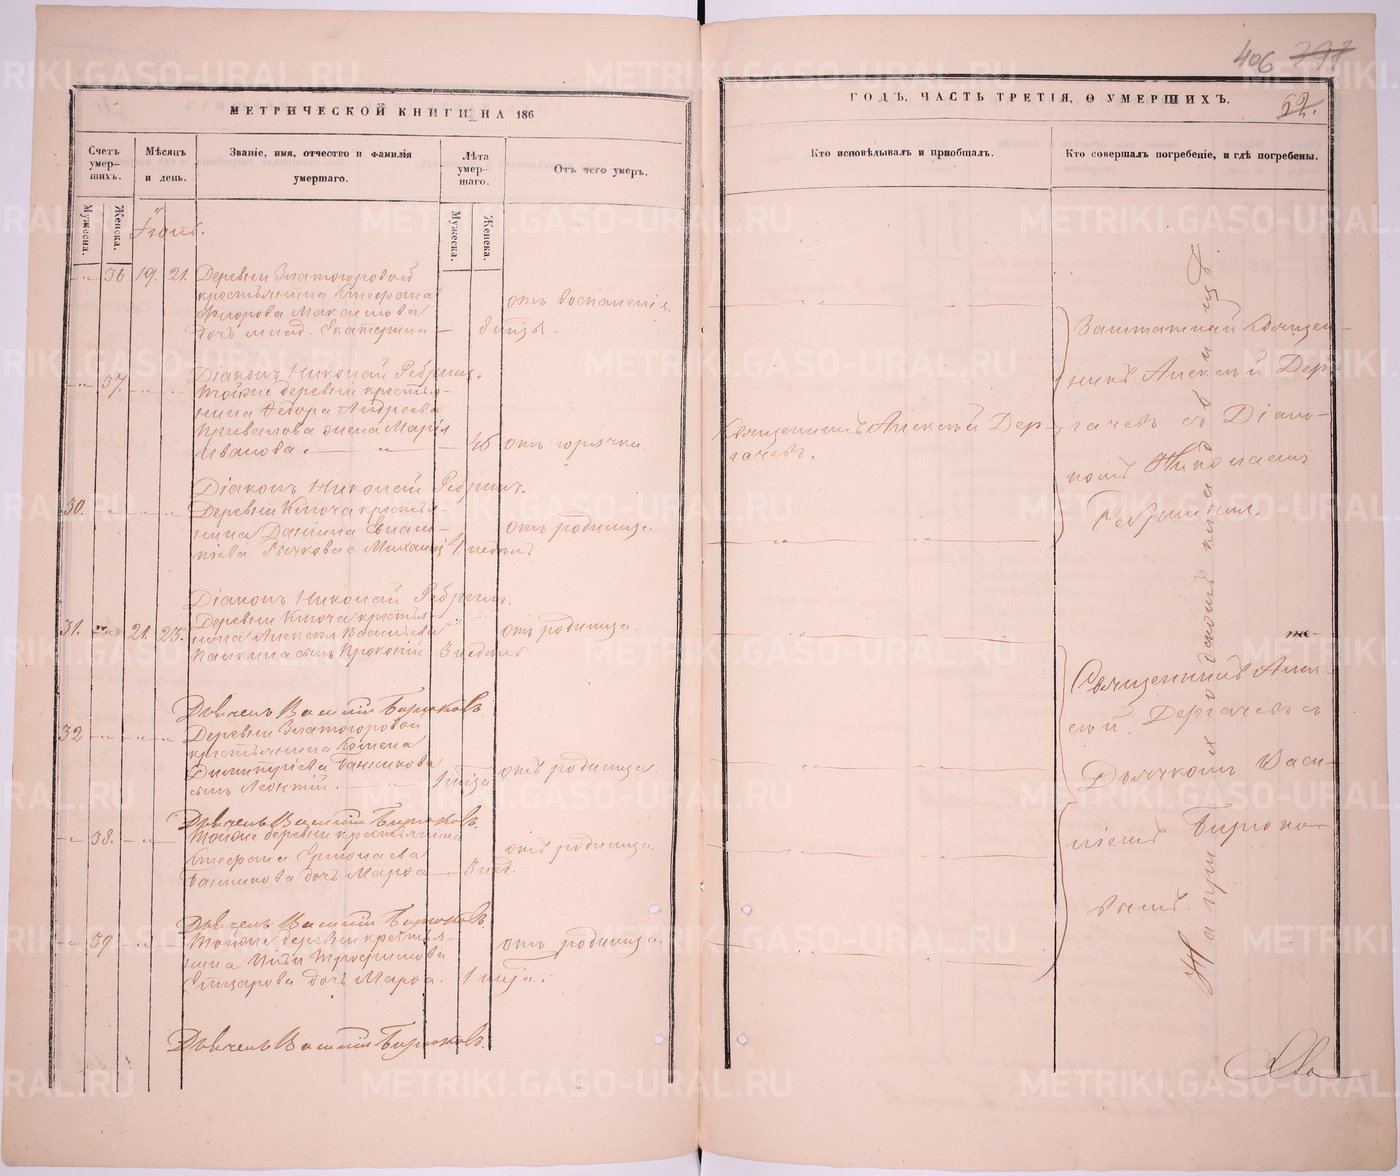 МЕТРИЧЕСКОЙ КНИГИ НА 186
Счетъ умер-шихъ.
Мужеска.
Женска.
Мѣсяцъ и день.
Званіе, имя, отчество и фамилія умершаго.
Лѣта умер-шаго.
Мужеска.
Женска.
Отъ чего умеръ.
Іюнь.
36 19. 21. Деревни Златогоровой
крестьянина Стефана
Максимова
дочь млад. Екатерина — 8 мцъ.
отъ воспаленія.
Діаконъ Николай Ребринъ.
37. Тойже деревни крестья-
нина Федора Андреева
Привалова жена Марія
Иванова. 46 отъ горячки.
Діаконъ Николай Ребринъ.
30. Деревни Ключа крестья-
нина Даніила
Рычкова с. Михаилъ 1 недель
отъ родимца.
Діаконъ Николай Ребринъ.
31. 21. 23. Деревни Ключа крестья-
нина Алексѣя Васильева
сынъ Прокопій 3 недель
отъ родимца.
Дьячекъ Василій Бирюковъ.
32 Деревни Златогоровой
крестьянина
Димитріева Банникова
сынъ Леонтій. 1 мца
отъ родимца.
Дьячекъ Василій Бирюковъ.
38. Тойже деревни крестьянина
Стефана Ермолаева
Банникова дочь Марѳа — 3 нед.
отъ родимца.
Дьячекъ Василій Бирюковъ.
39 Тойже деревни крестья-
нина Трофимова
дочь Марѳа. 1 мца.
отъ родимца.
Дьячекъ Василій Бирюковъ.
406 397
ГОДЪ, ЧАСТЬ ТРЕТІЯ, О УМЕРШИХЪ.
62.
Кто исповѣдывалъ и пріобщалъ.
Кто совершалъ погребеніе, и гдѣ погребены.
Священникъ Алексѣй Дер-
гачевъ.
Заштатный Священ-
никъ Алексѣй Дер-
гачевъ съ Діако-
номъ Николаемъ
Ребринымъ.
Священникъ Алек-
сѣй Дергачевъ съ
Дьячкомъ Васи-
ліемъ Бирюко-
вымъ.
На приходскомъ кладбищѣ
METRIKI.GASO-URAL.RU